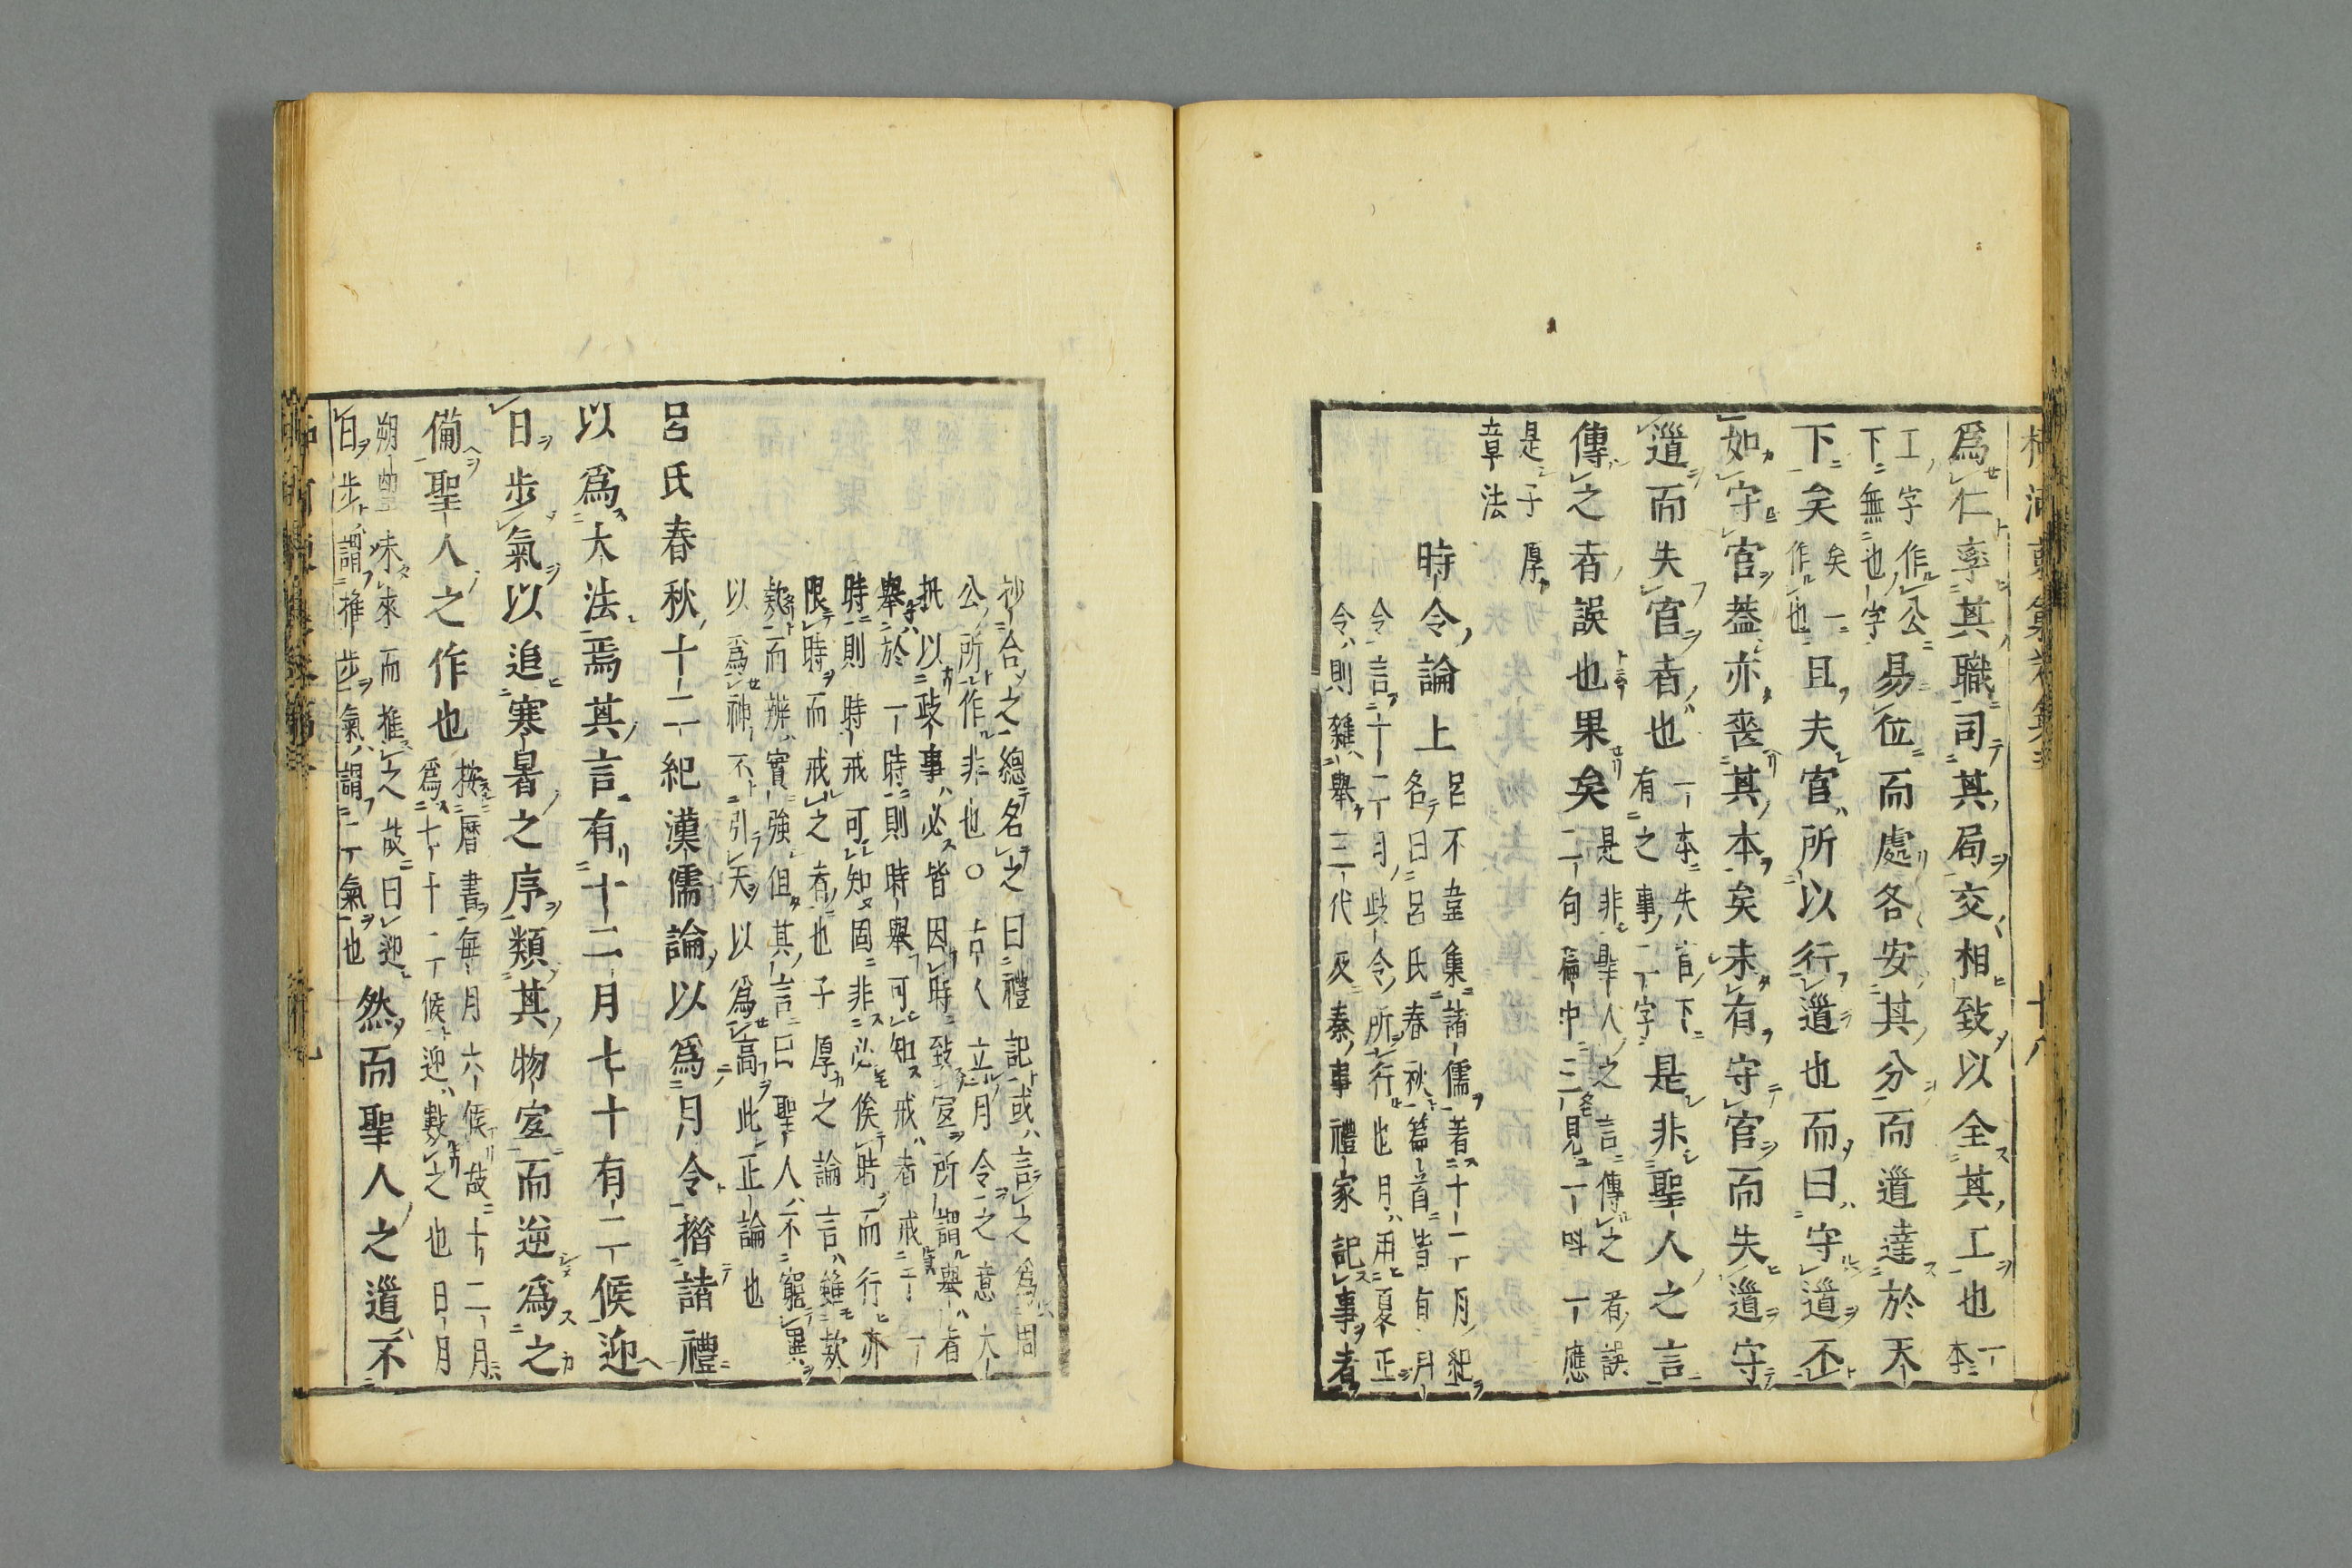 爲仁率其職司其局交相致以全其工也一本
工字作公
下無也字
易位而處各安其分而道達於天
下矣矣一
作也
且夫官所以行道也而曰守道不
如守官蓋亦喪其本矣未有守官而失道守
道而失官者也一本失官下
有之事二字
是非聖人之言
傳之者誤也果矣是非聖人之言傳之者誤
二句篇中三見一呌一應
是子厚
章法
時令論上
呂不韋集諸儒著十二月紀
名曰呂氏春秋篇首皆有月
令言十二月政令所行也月用夏正
令則雜舉三代及秦事禮家記事者
抄合之總名之曰禮記或言之爲周
公所作非也〇古人立月令之意大
抵以政事必皆因時致宜所謂舉者
舉於一時則時舉可知戒者戒於一
時則時戒可知固非必俟時而行亦
限時而戒之者也子厚之論言雖款
款而辨實強但其言曰聖人不窮異
以爲神不引天以爲高此正論也
呂氏春秋十二紀漢儒論以爲月令措諸禮
以爲大法焉其言有十二月七十有二候迎
日步氣以追寒暑之序類其物宜而逆爲之
備聖人之作也按曆書每月六候故十二月
爲七十二候迎數之也日月
朔望未來而推之故曰迎
日步謂推步氣謂二氣也
然而聖人之道不